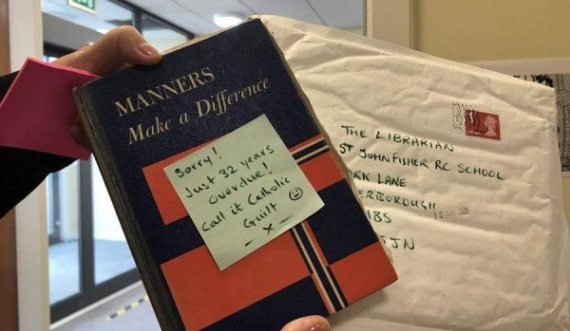 MANNERS
Make a Difference
Sorry!
Just 32 years
Overdue!
Call it Catholic
Guilt
x
THE LIBRARIAN
ST JOHN FISHER RC SCHOOL
RK LANE
ERBOROUGH
IBS
JN